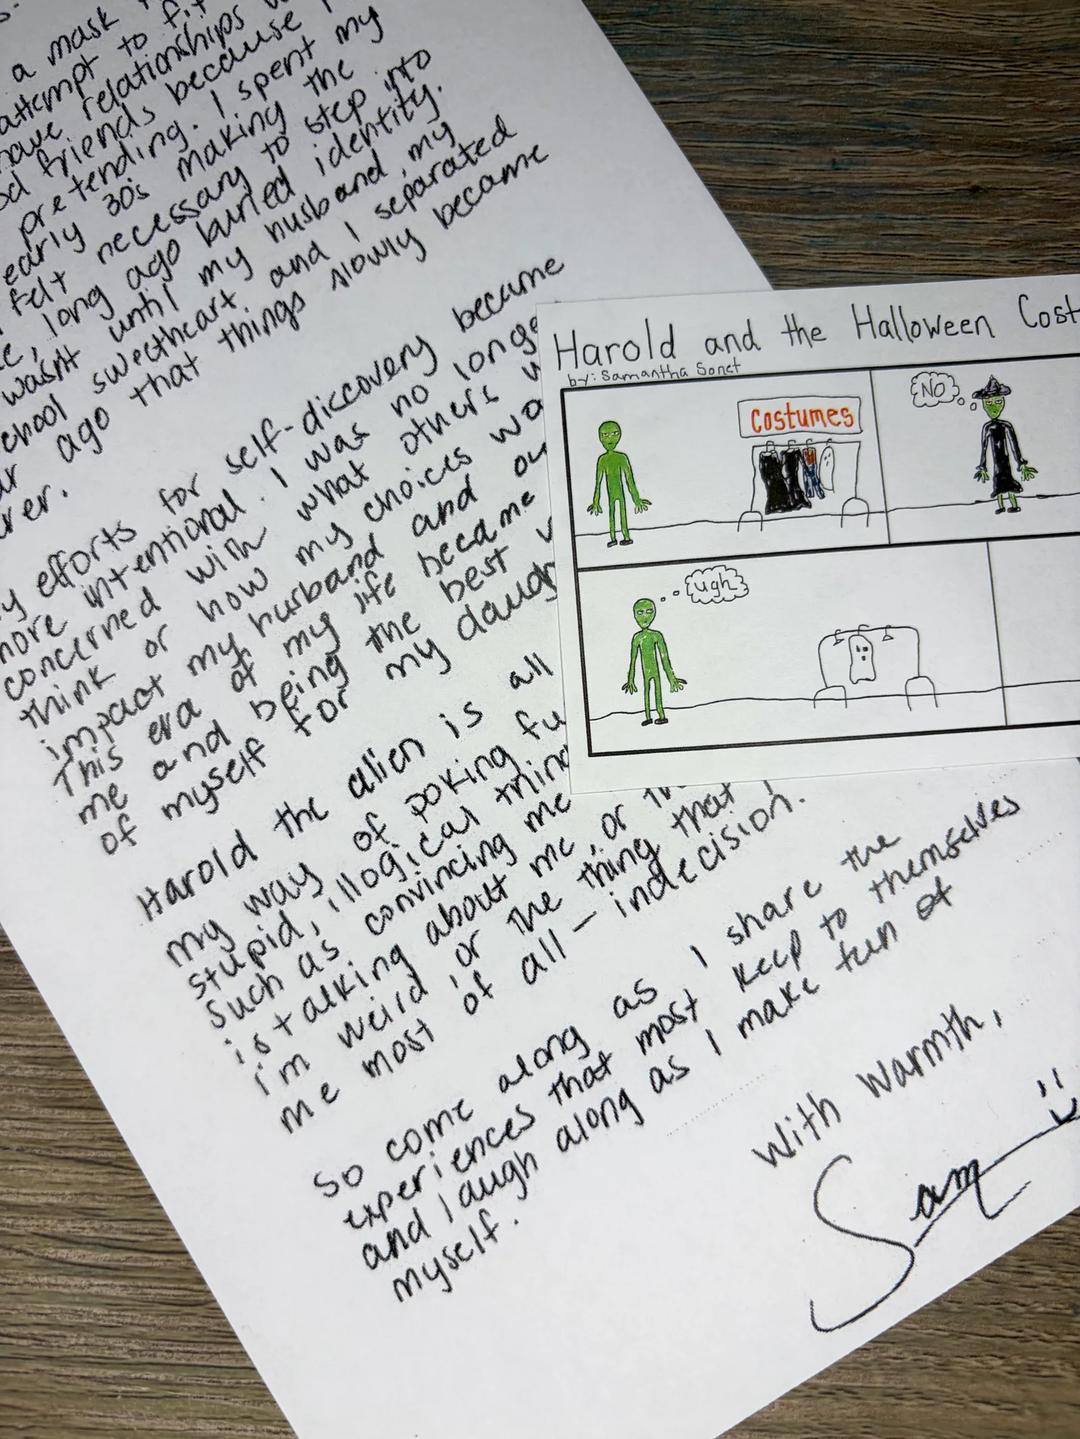 a mask
attempt to fit
have relationships
friends because
pretending. I spent my
early 30s making the
felt necessary to step into
long ago buried identity.
wasn't until my husband, my
school sweetheart and I separated
ago that things slowly became
efforts for self-discovery became
more intentional. I was no
concerned with what others
think or how my choices
impact my husband and
This era of my life became
me and being the best
of myself for my
Harold the alien is all
my way of poking
stupid, illogical
such as convincing me
is talking about me, or
i'm weird, or the thing that
me most of all — indecision.
So come along as I share the
experiences that most keep to themselves
and laugh along as I make fun of
myself.
With Warmth,
Sam
Harold and the Halloween
by: Samantha Sonet
Costumes
NO
ugh